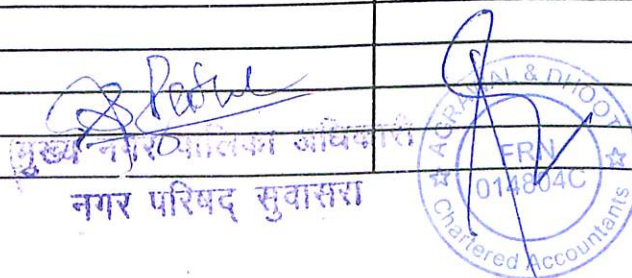 मुख्य नगर पालिका अधिकारी
नगर परिषद् सुवासरा
AGRAWAL & DHOOT
FRN
014804C
Chartered Accountants